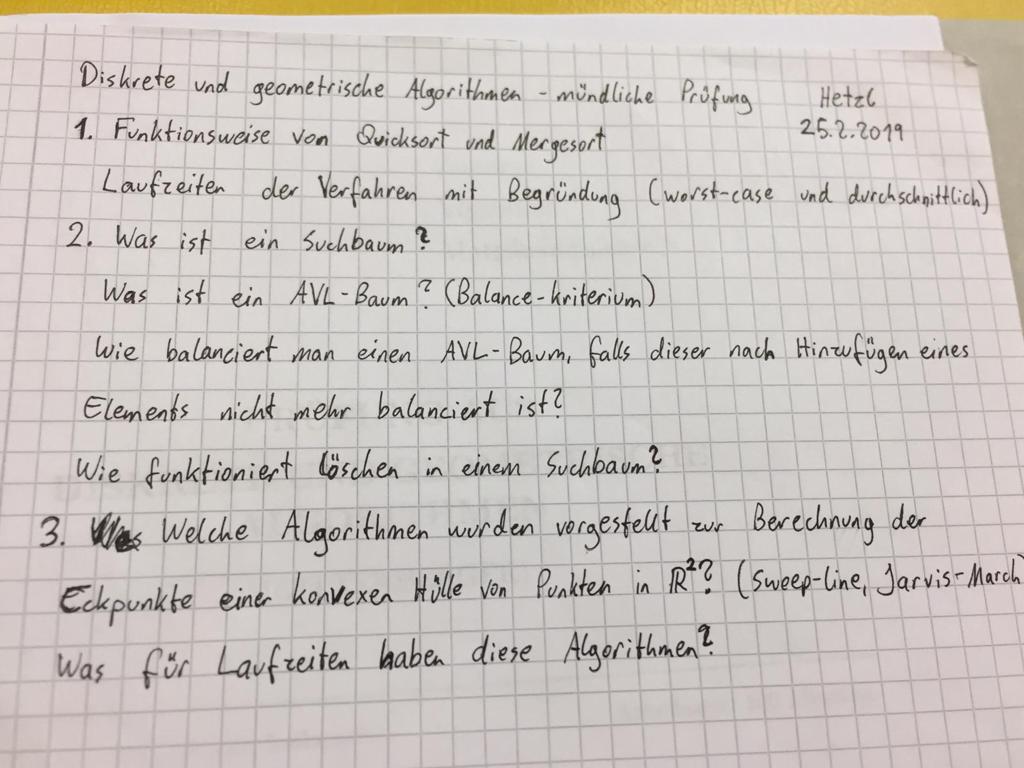 Diskrete und geometrische Algorithmen - mündliche Prüfung Hetzl
25.2.2019
1. Funktionsweise von Quicksort und Mergesort
Laufzeiten der Verfahren mit Begründung (worst-case und durchschnittlich)
2. Was ist ein Suchbaum?
Was ist ein AVL-Baum? (Balance-kriterium)
Wie balanciert man einen AVL-Baum, falls dieser nach Hinzufügen eines
Elements nicht mehr balanciert ist?
Wie funktioniert löschen in einem Suchbaum?
3. Welche Algorithmen wurden vorgestellt zur Berechnung der
Eckpunkte einer konvexen Hülle von Punkten in ℝ²? (Sweep-line, Jarvis-March)
Was für Laufzeiten haben diese Algorithmen?